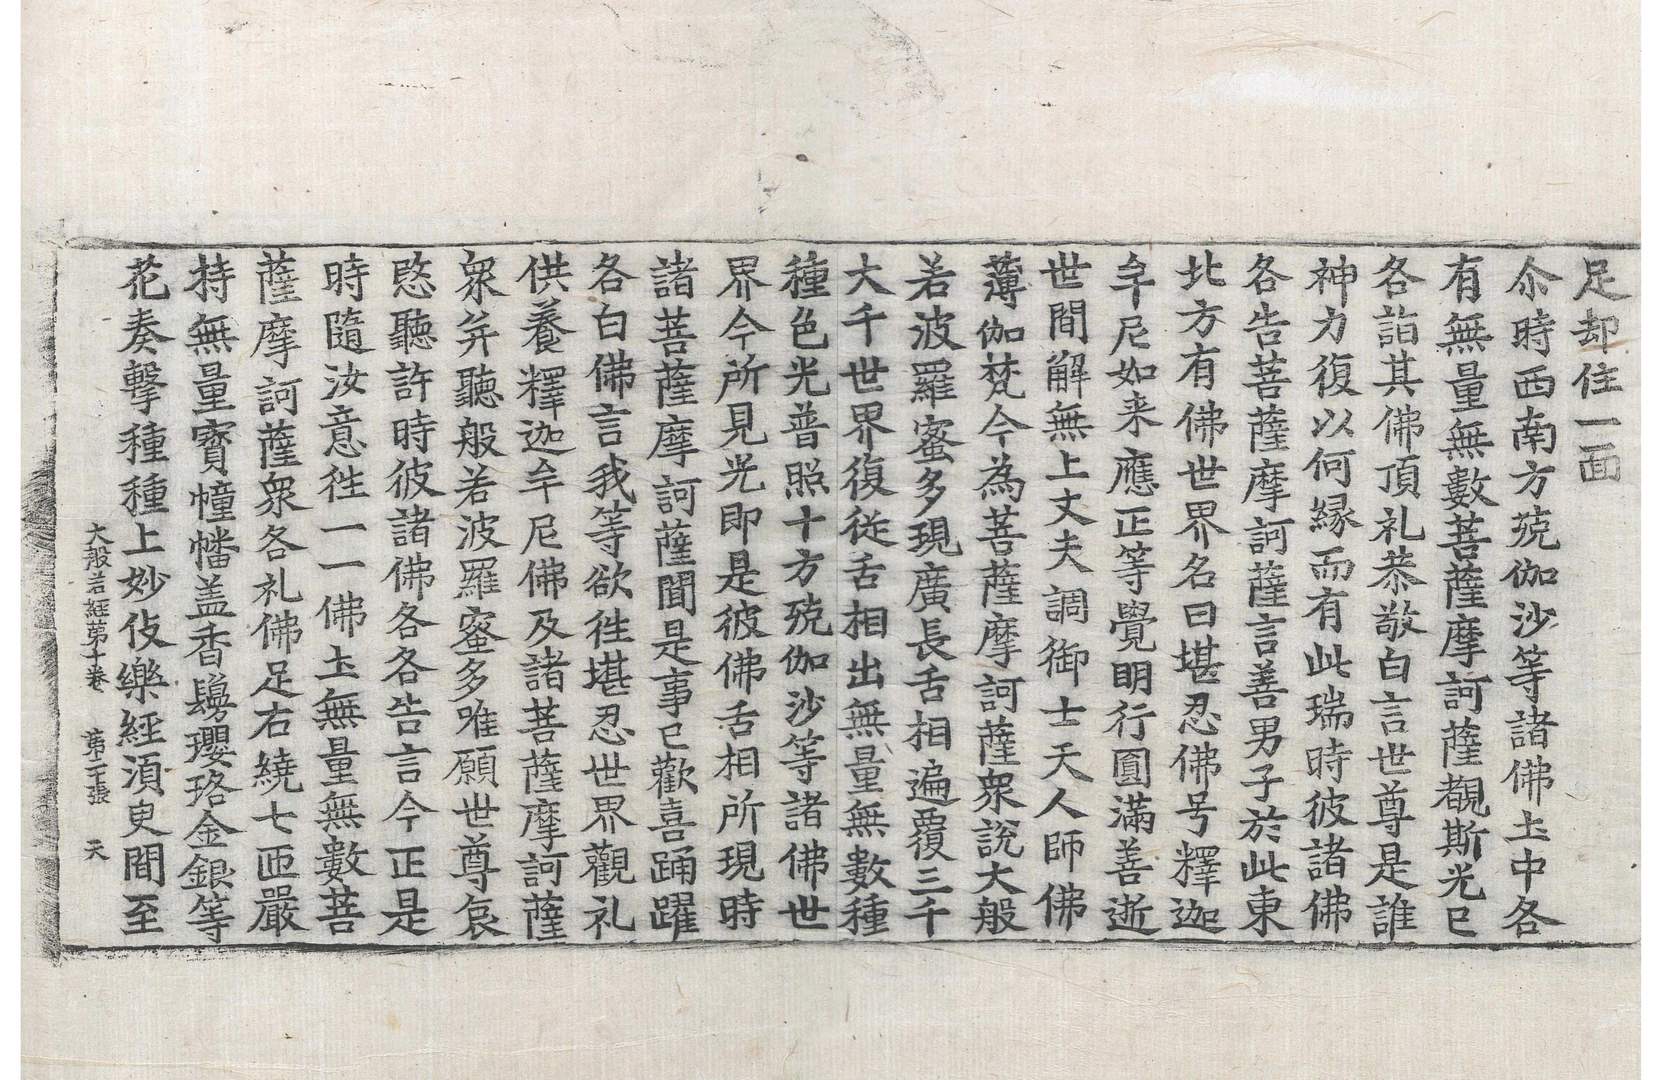 足却住一面
尒時西南方殑伽沙等諸佛土中各
有無量無數菩薩摩訶薩覩斯光已
各詣其佛頂礼恭敬白言世尊是誰
神力復以何縁而有此瑞時彼諸佛
各告菩薩摩訶薩言善男子於此東
北方有佛世界名曰堪忍佛号釋迦
牟尼如来應正等覺明行圓滿善逝
世間解無上丈夫調御士天人師佛
薄伽梵今為菩薩摩訶薩衆說大般
若波羅蜜多現廣長舌相遍覆三千
大千世界復從舌相出無量無數種
種色光普照十方殑伽沙等諸佛世
界今所見光即是彼佛舌相所現時
諸菩薩摩訶薩聞是事已歡喜踊躍
各白佛言我等欲徃堪忍世界觀礼
供養釋迦牟尼佛及諸菩薩摩訶薩
衆并聽般若波羅蜜多唯願世尊哀
愍聽許時彼諸佛各各告言今正是
時隨汝意徃一一佛土無量無數菩
薩摩訶薩衆各礼佛足右繞七匝嚴
持無量寳幢幡盖香鬘瓔珞金銀等
花奏擊種種上妙伎樂經須臾間至
大般若經第十卷 第二十張 天